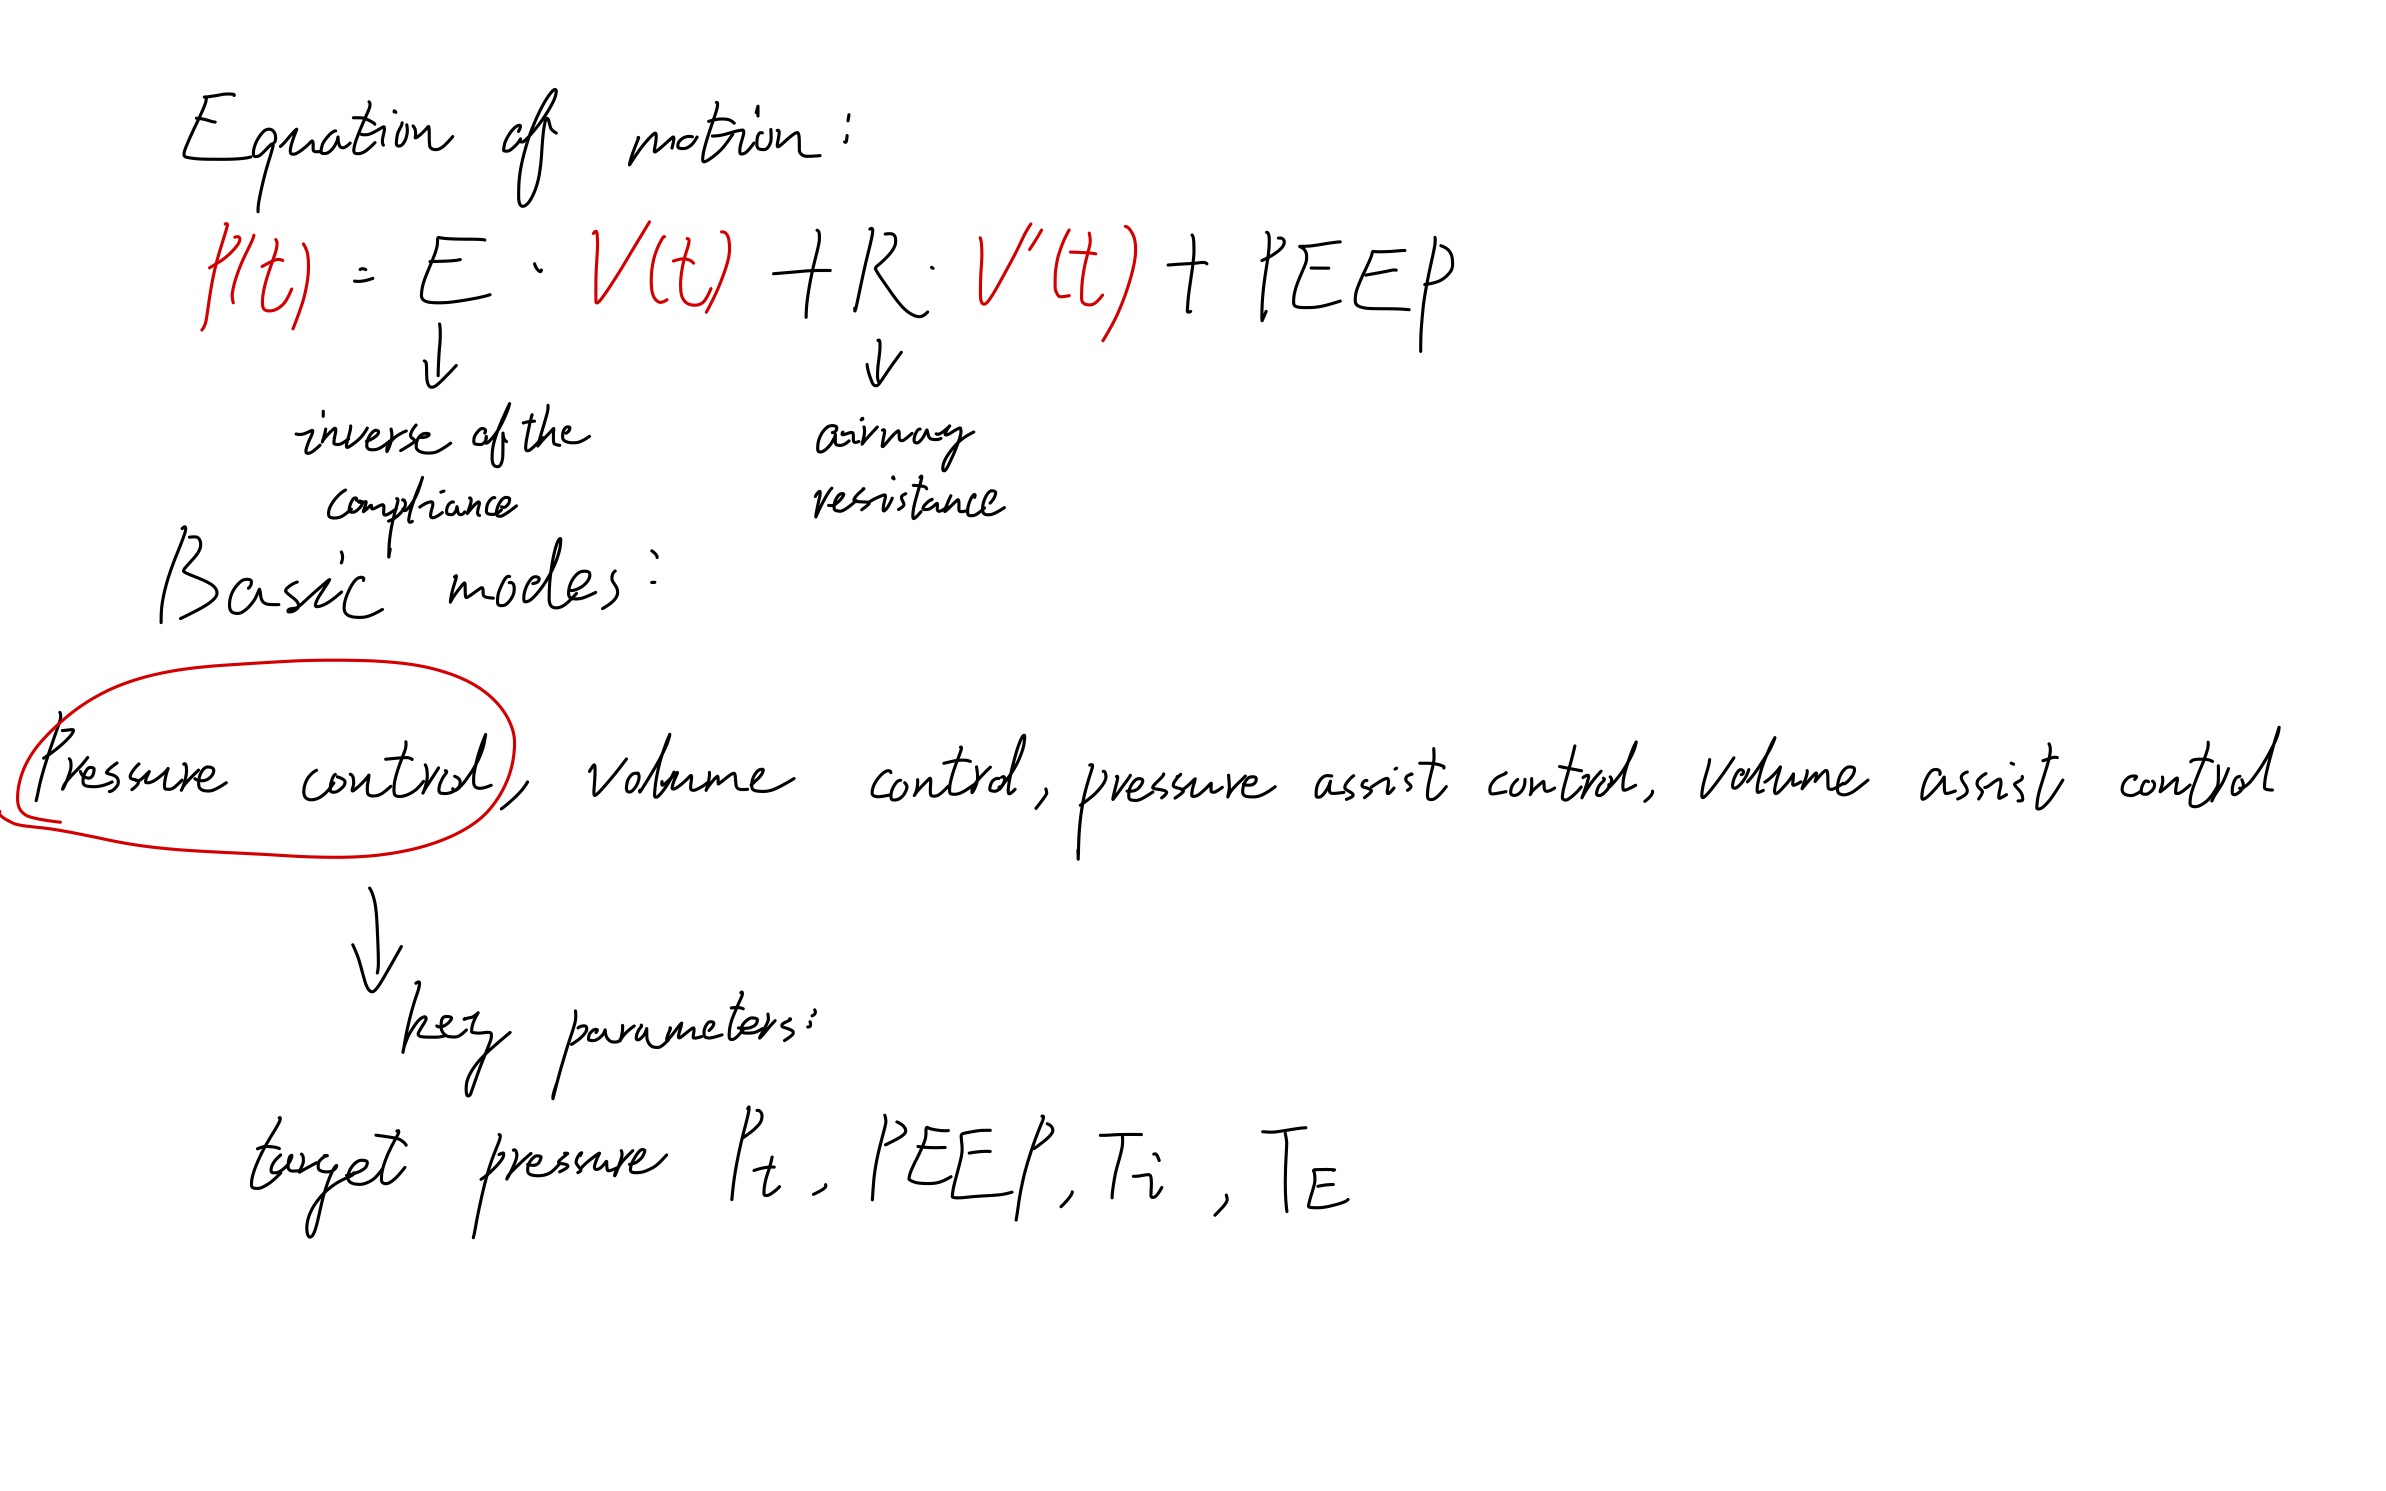 Equation of motion:
P(t) = E · V(t) + R · V'(t) + PEEP
inverse of the
compliance
airway
resistance
Basic modes:
Pressure control, volume control, pressure assist control, volume assist control
key parameters:
target pressure Pt, PEEP, Ti, TE